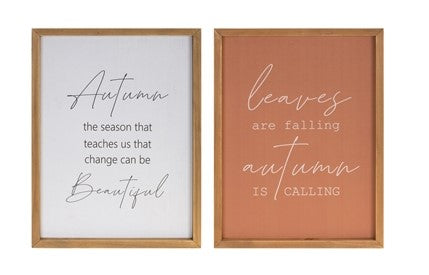 Autumn
the season that
teaches us that
change can be
Beautiful
leaves
are falling
autumn
IS CALLING